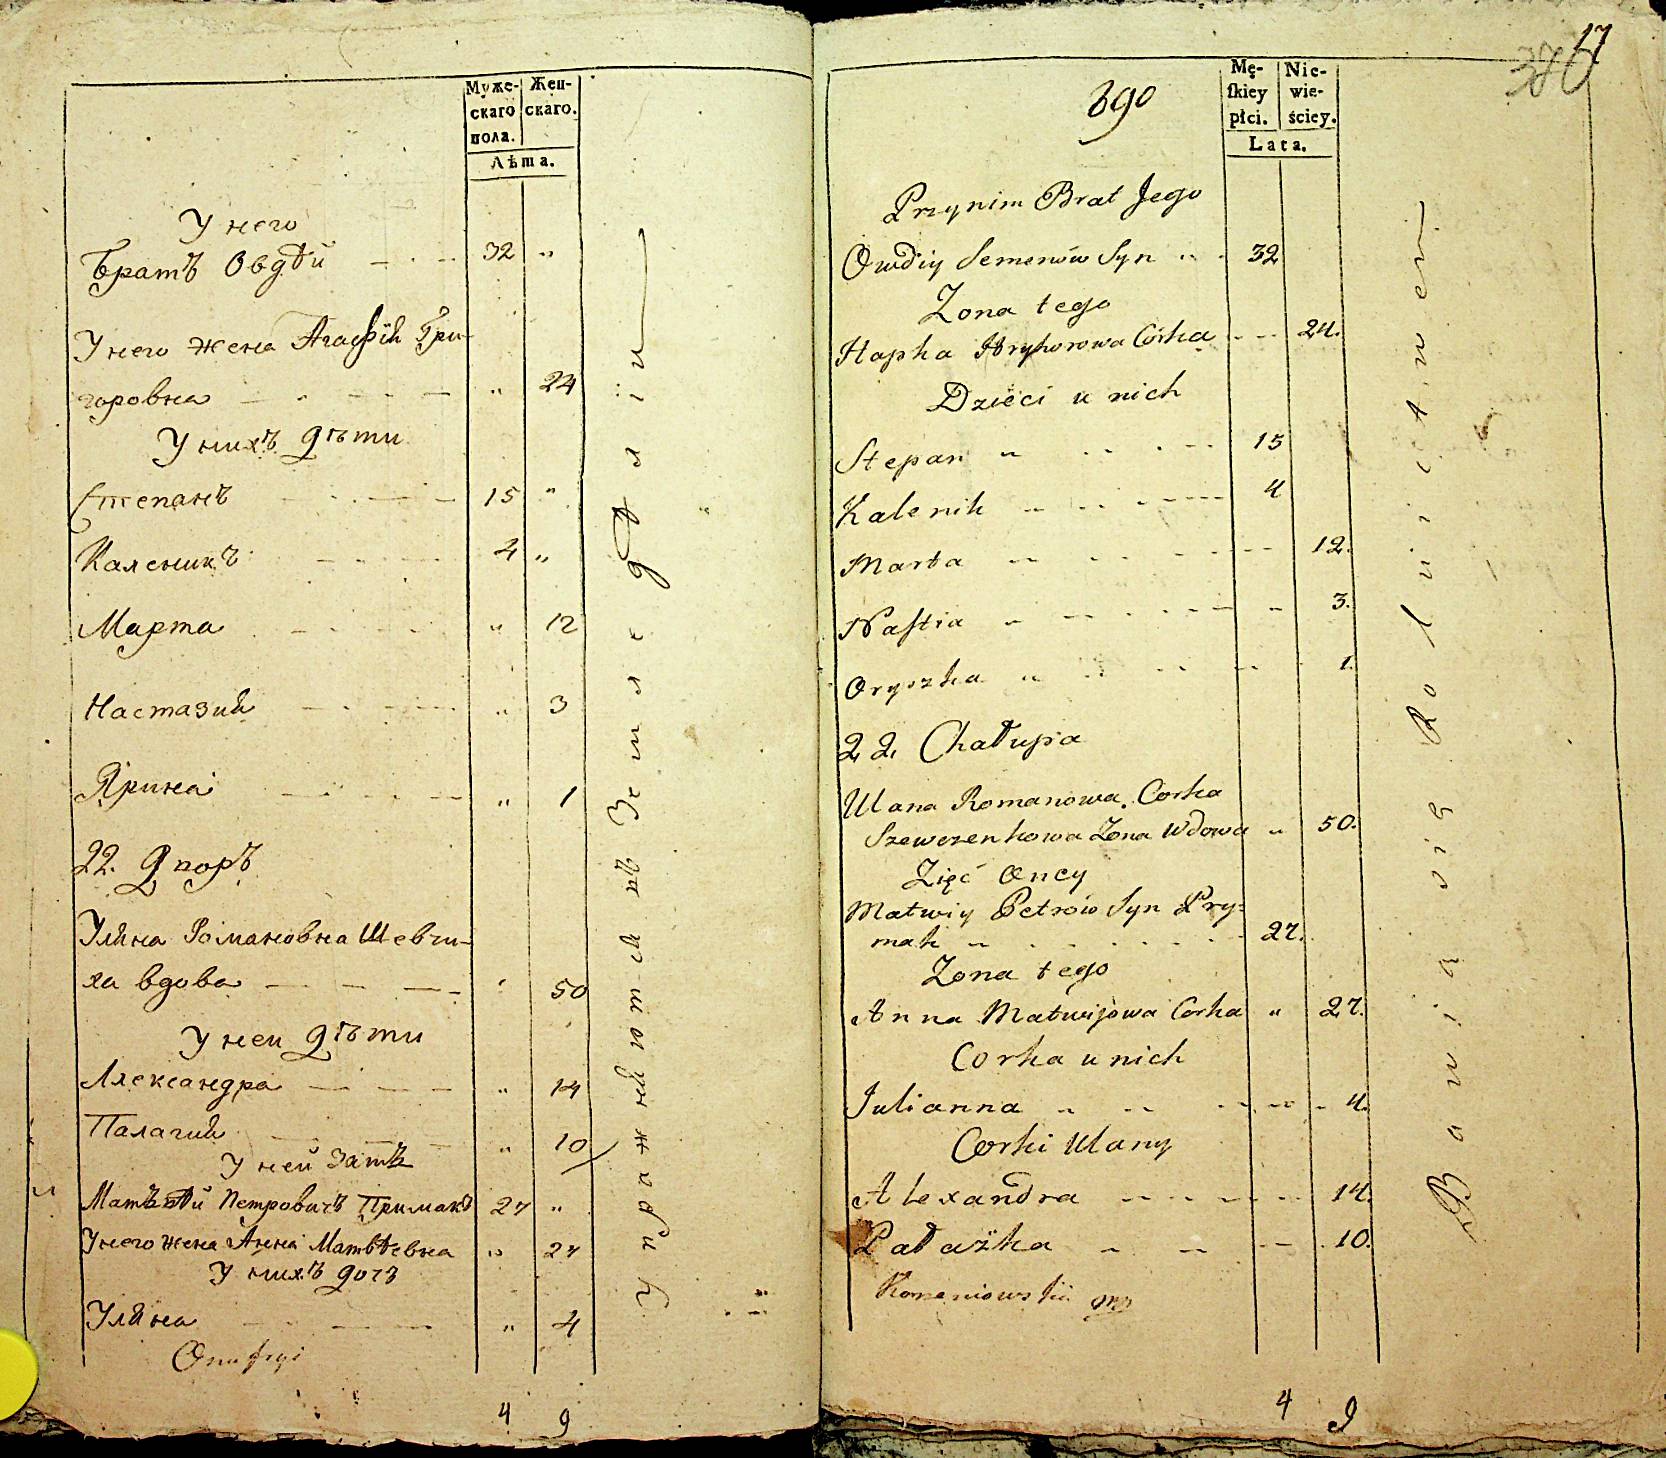 Муже-
скаго
пола.
Жен-
скаго.
Лѣта.
У него
братъ Овдѣй 32 "
У него жена Агафія Гри-
горовна " 24
У нихъ дѣти
Степанъ 15 "
Каленикъ 4 "
Марта " 12
Настазия " 3
Ярина " 1
22. Дворъ
Уляна Романовна Шевчи-
ха вдова " 50
У неи дѣти
Александра " 14
Палагия " 10
У ней зать
Матьвѣй Петровичъ Примакъ 27 "
У него жена Анна Матвѣевна " 27
У нихъ дочь
Уляна " 4
Onufryi
4 9
Упражняются въ земледѣлiи
17
380
390
Mę-
ſkiey
płci.
Nie-
wie-
ściey.
Lata.
Przynim Brat Jego
Owdiy Semenów Syn 32
Zona tego
Hapka Hryhorowa Córka 24.
Dzieci u nich
Stepan " 15
Kalenik " 4
Marta " 12.
Naſtia " 3.
Oryszka " 1.
22. Chałupa
Ulana Romanowa Corka
Szewczenkowa Zona Wdowa " 50.
Zięć Oney
Matwiy Petrów Syn Pry-
mak " 27.
Zona tego
Anna Matwijowa Corka " 27.
Corka u nich
Julianna " 4.
Corki Ulany
Alexandra 14.
Pałażka 10.
4 9
Bawią się Rolnictwem